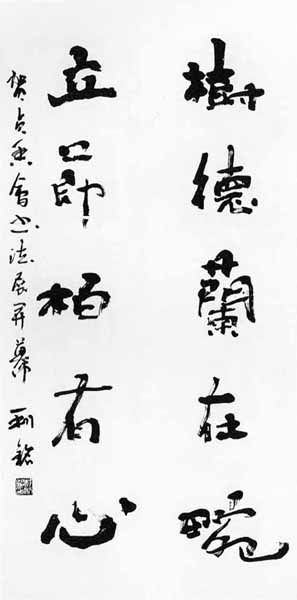 樹德蘭在畹
立節柏有心
賀貞香會書法展開幕